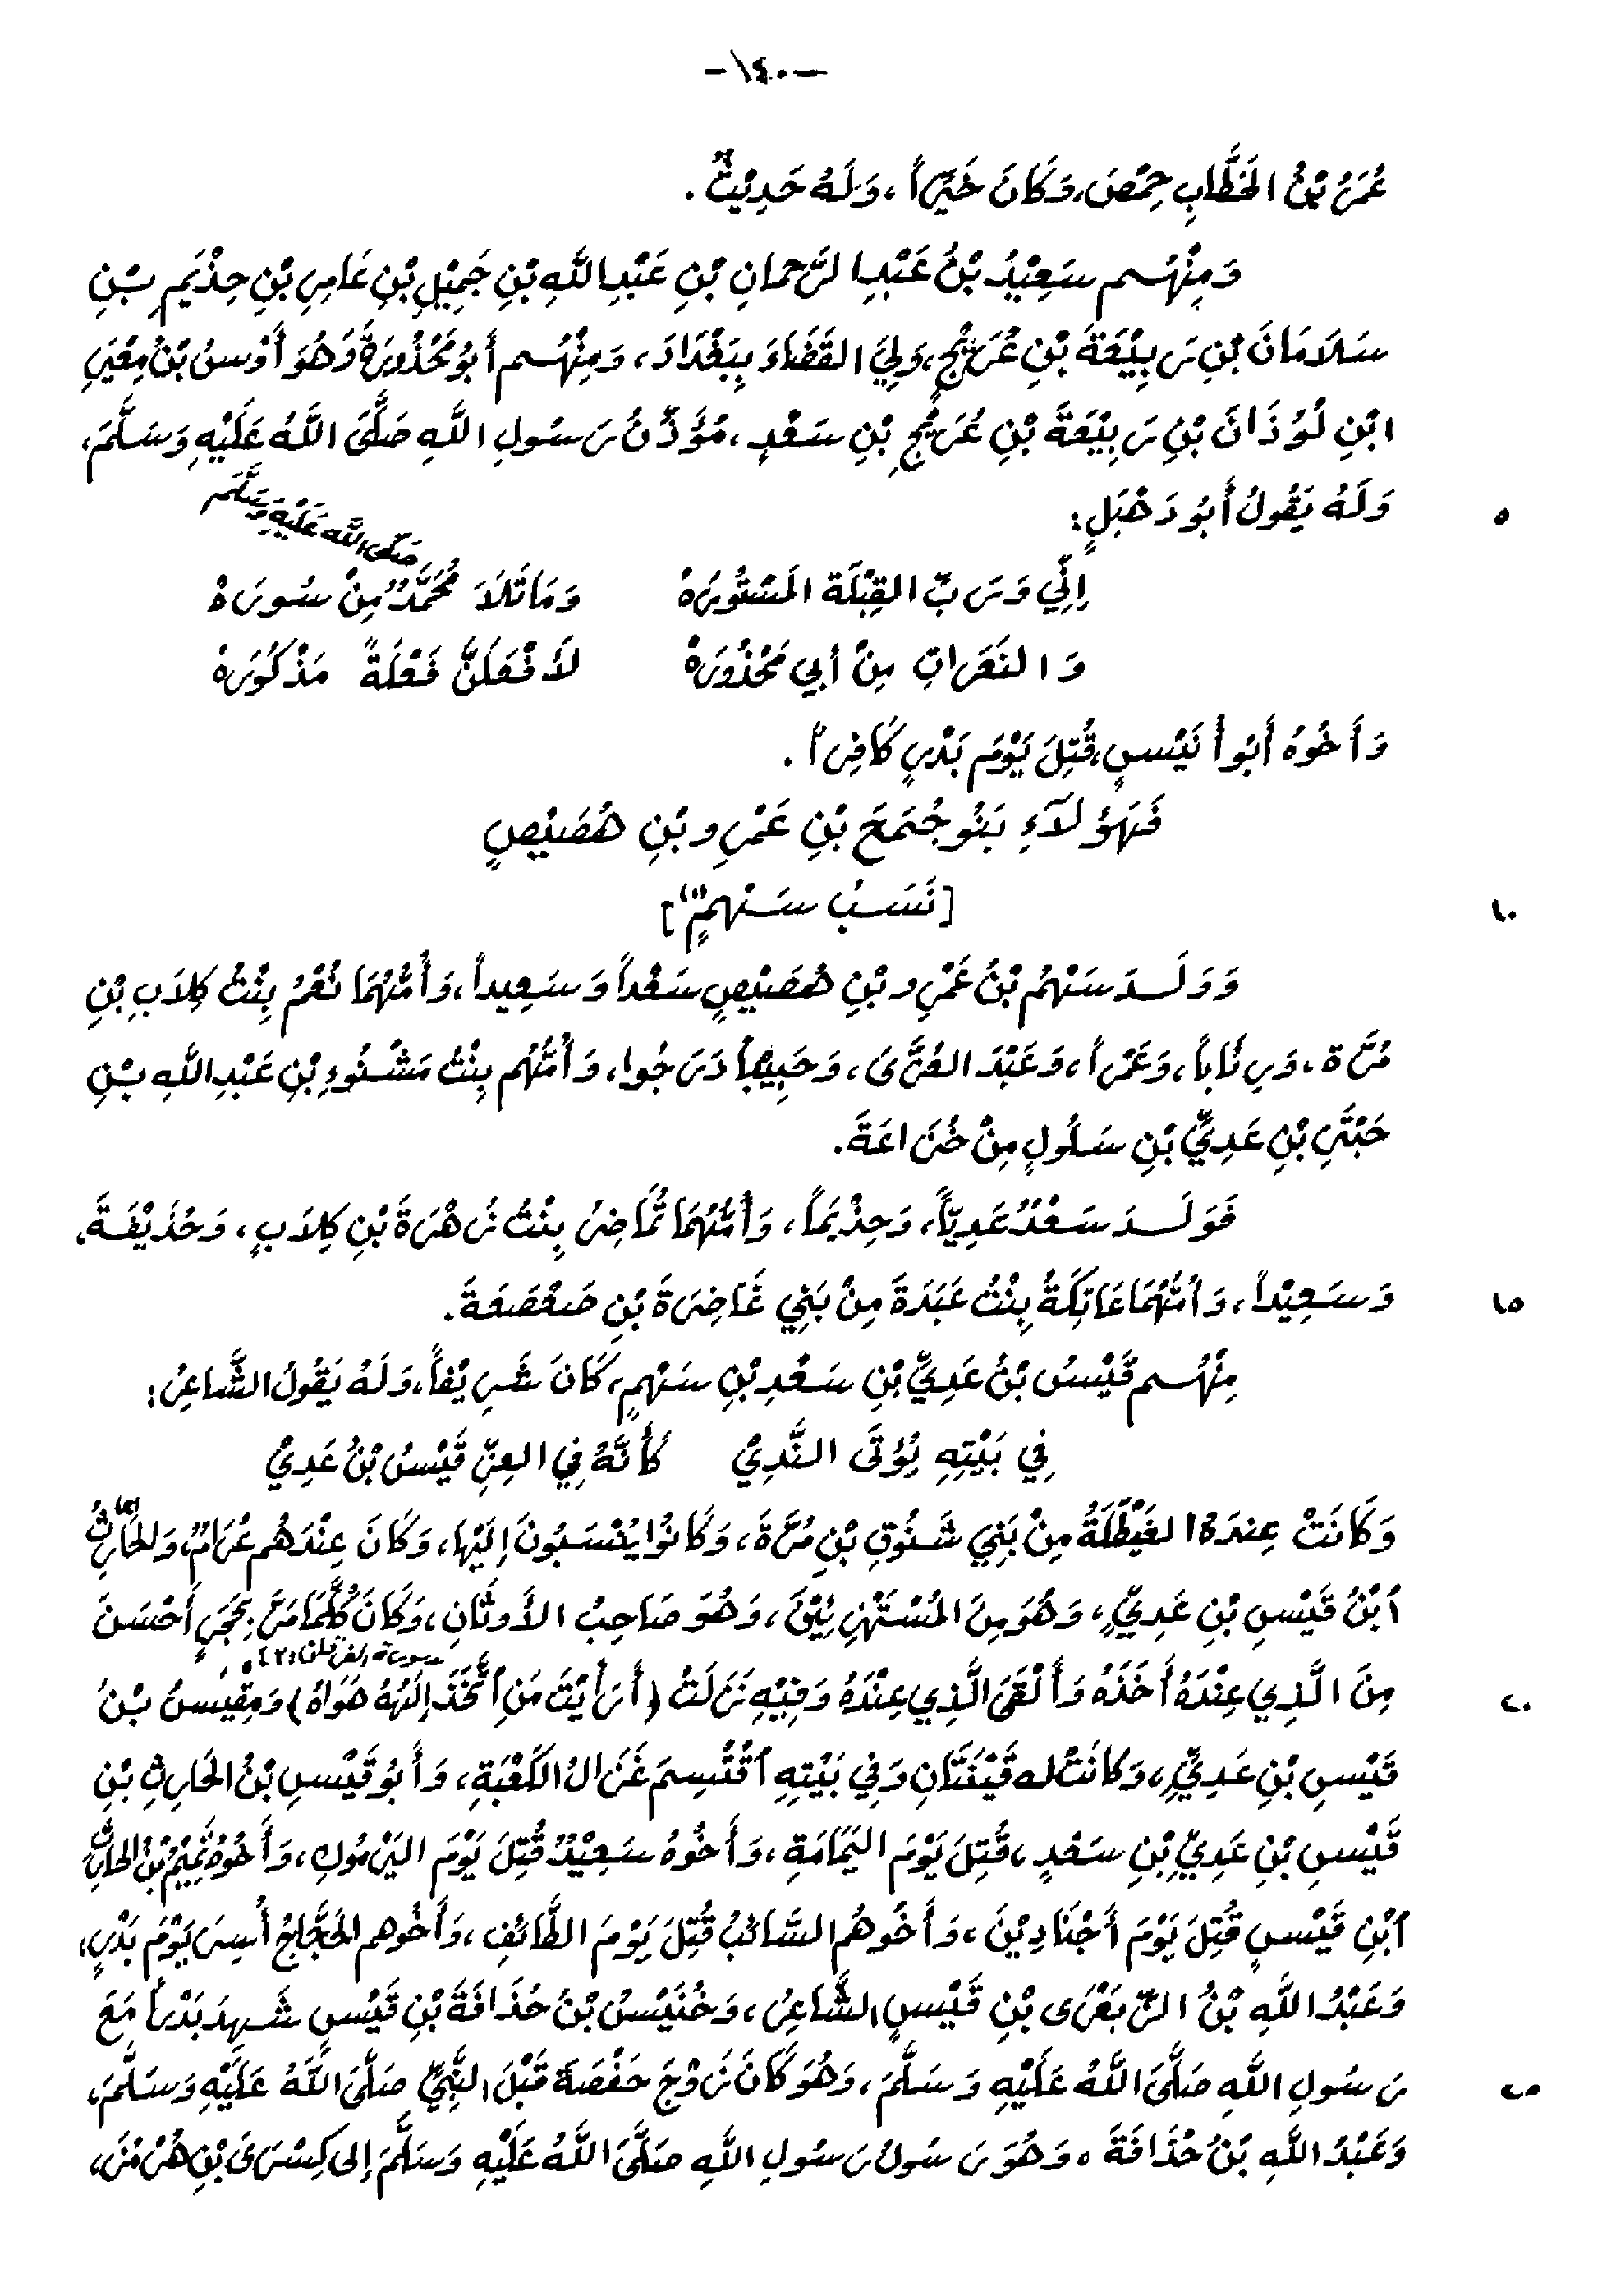 -١٤٠-
عُمَرُ بْنُ الخَطَّابِ حِمْصَ، وَكَانَ خَيِّراً، وَلَهُ حَدِيْثٌ.
وَمِنْهُم سَعِيْدُ بْنُ عَبْدِ الرَّحمانِ بْنِ عَبْدِ اللَّهِ بْنِ جَمِيْلِ بْنِ عَامِرِ بْنِ حِذْيَمِ بْنِ
سَلَامَانَ بْنِ رَبِيْعَةَ بْنِ عُرَيْجٍ، وَلِيَ القَضَاءَ بِبَغْدَادَ، وَمِنْهُم أَبُو مَحْذُورَةَ وَهُوَ أَوْسُ بْنُ مِعْيَرِ
ابْنِ لُوْذَانَ بْنِ رَبِيْعَةَ بْنِ عُرَيْجِ بْنِ سَعْدٍ، مُؤَذِّنُ رَسُولِ اللَّهِ صَلَّى اللَّهُ عَلَيْهِ وَسَلَّمَ،
وَلَهُ يَقُولُ أَبُو دَهْبَلٍ: ٥
صَلَّى اللَّه عَلَيْهِ وَسَلَّم
إِنِّي وَرَبِّ القِبْلَةِ المَسْتُورَهْ وَمَا تَلَا مُحَمَّدٌ مِنْ سُورَهْ
وَالنَّعَرَاتِ مِنْ أَبي مَحْذُورَهْ لَأَفْعَلَنَّ فَعْلَةً مَذْكُورَهْ
وَأَخُوهُ أَبُو أُنَيْسٍ، قُتِلَ يَوْمَ بَدْرٍ كَافِراً.
فَهَؤُلَآءِ بَنُو جُمَحَ بْنِ عَمْرِو بْنِ هُصَيْصٍ
[نَسَبُ سَهْمٍ (١)] ١٠
وَوَلَدَ سَهْمُ بْنُ عَمْرِو بْنِ هُصَيْصٍ سَعْداً وَسَعِيداً، وَأُمُّهُمَا نُعْمُ بِنْتُ كِلَابِ بْنِ
مُرَّة، وَرِئَاباً، وَعَمْراً، وَعَبْدَ العُزَّى، وَحَبِيْباً دَرَجُوا، وَأُمُّهُم بِنْتُ مَشْنُوءِ بْنِ عَبْدِ اللَّهِ بْنِ
حَبْتَرِ بْنِ عَدِيِّ بْنِ سَلُولٍ مِنْ خُزَاعَةَ.
فَوَلَدَ سَعْدٌ عَدِيّاً، وَحِذْيَماً، وَأُمُّهُمَا تُمَاضِرُ بِنْتُ زُهْرَةَ بْنِ كِلَابٍ، وَحُذَيْفَةَ،
وَسَعِيْداً، وَأُمُّهُمَا عَاتِكَةُ بِنْتُ عَبَدَةَ مِنْ بَنِي غَاضِرَةَ بْنِ صَعْصَعَةَ. ١٥
مِنْهُم قَيْسُ بْنُ عَدِيِّ بْنِ سَعْدِ بْنِ سَهْمٍ، كَانَ شَرِيْفاً، وَلَهُ يَقُولُ الشَّاعِرُ:
فِي بَيْتِهِ يُؤْتَى النَّدِيْ كَأَنَّهُ فِي العِزِّ قَيْسُ بْنُ عَدِيْ
وَكَانَتْ عِندَهُ الغَيْطَلَةُ مِنْ بَنِي شَنُوقِ بْنِ مُرَّةَ، وَكَانُوا يُنْسَبُونَ إِلَيْهَا، وَكَانَ عِنْدَهُم عُرَامٌ، وَالحَارِثُ
ٱبْنُ قَيْسِ بْنِ عَدِيٍّ، وَهُوَ مِنَ المُسْتَهْزِئِيْنَ، وَهُوَ صَاحِبُ الأَوثَانِ، وَكَانَ كُلَّمَا مَرَّ بِحَجَرٍ أَحْسَنَ
سورة الفرقان: ٤٣
مِنَ الَّذِي عِنْدَهُ أَخَذَهُ وَأَلْقَى الَّذِي عِنْدَهُ وَفِيْهِ نَزَلَتْ (أَرَأَيْتَ مَنِ ٱتَّخَذَ إِلَهَهُ هَوَاهُ) وَمِقْيَسُ بْنُ ٢٠
قَيْسِ بْنِ عَدِيٍّ، وَكَانَتْ له قَيْنَتَانِ وَفِي بَيْتِهِ ٱقْتُسِمَ غَزَالُ الكَعْبَةِ، وَأَبُو قَيْسِ بْنُ الحَارِثِ بْنِ
قَيْسِ بْنِ عَدِيِّ بْنِ سَعْدٍ، قُتِلَ يَوْمَ اليَمَامَةِ، وَأَخُوهُ سَعِيْدٌ قُتِلَ يَوْمَ اليَرْمُوكِ، وَأَخُوهُ تَمِيْمُ بْنُ الحَارِثِ
ٱبْنِ قَيْسٍ قُتِلَ يَوْمَ أَجْنَادِيْنَ، وَأَخُوهُم السَّائبُ قُتِلَ يَوْمَ الطَّائِفِ، وَأَخُوهم الحَجَّاجُ أُسِرَ يَوْمَ بَدْرٍ،
وَعَبْدُ اللَّهِ بْنُ الزِّبَعْرَى بْنِ قَيْسٍ الشَّاعِرُ، وَخُنَيْسُ بْنُ حُذَافَةَ بْنِ قَيْسٍ شَهِدَ بَدْراً مَعَ
رَسُولِ اللَّهِ صَلَّى اللَّهُ عَلَيْهِ وَسَلَّمَ، وَهُوَ كَانَ زَوْجَ حَفْصَةَ قَبْلَ النَّبِيِّ صَلَّى اللَّهُ عَلَيْهِ وَسَلَّمَ، ٢٥
وَعَبْدُ اللَّهِ بْنُ حُذَافَةَ، وَهُوَ رَسُولُ رَسُولِ اللَّهِ صَلَّى اللَّهُ عَلَيْهِ وَسَلَّمَ إِلى كِسْرَى بْنِ هُرْمُزَ،